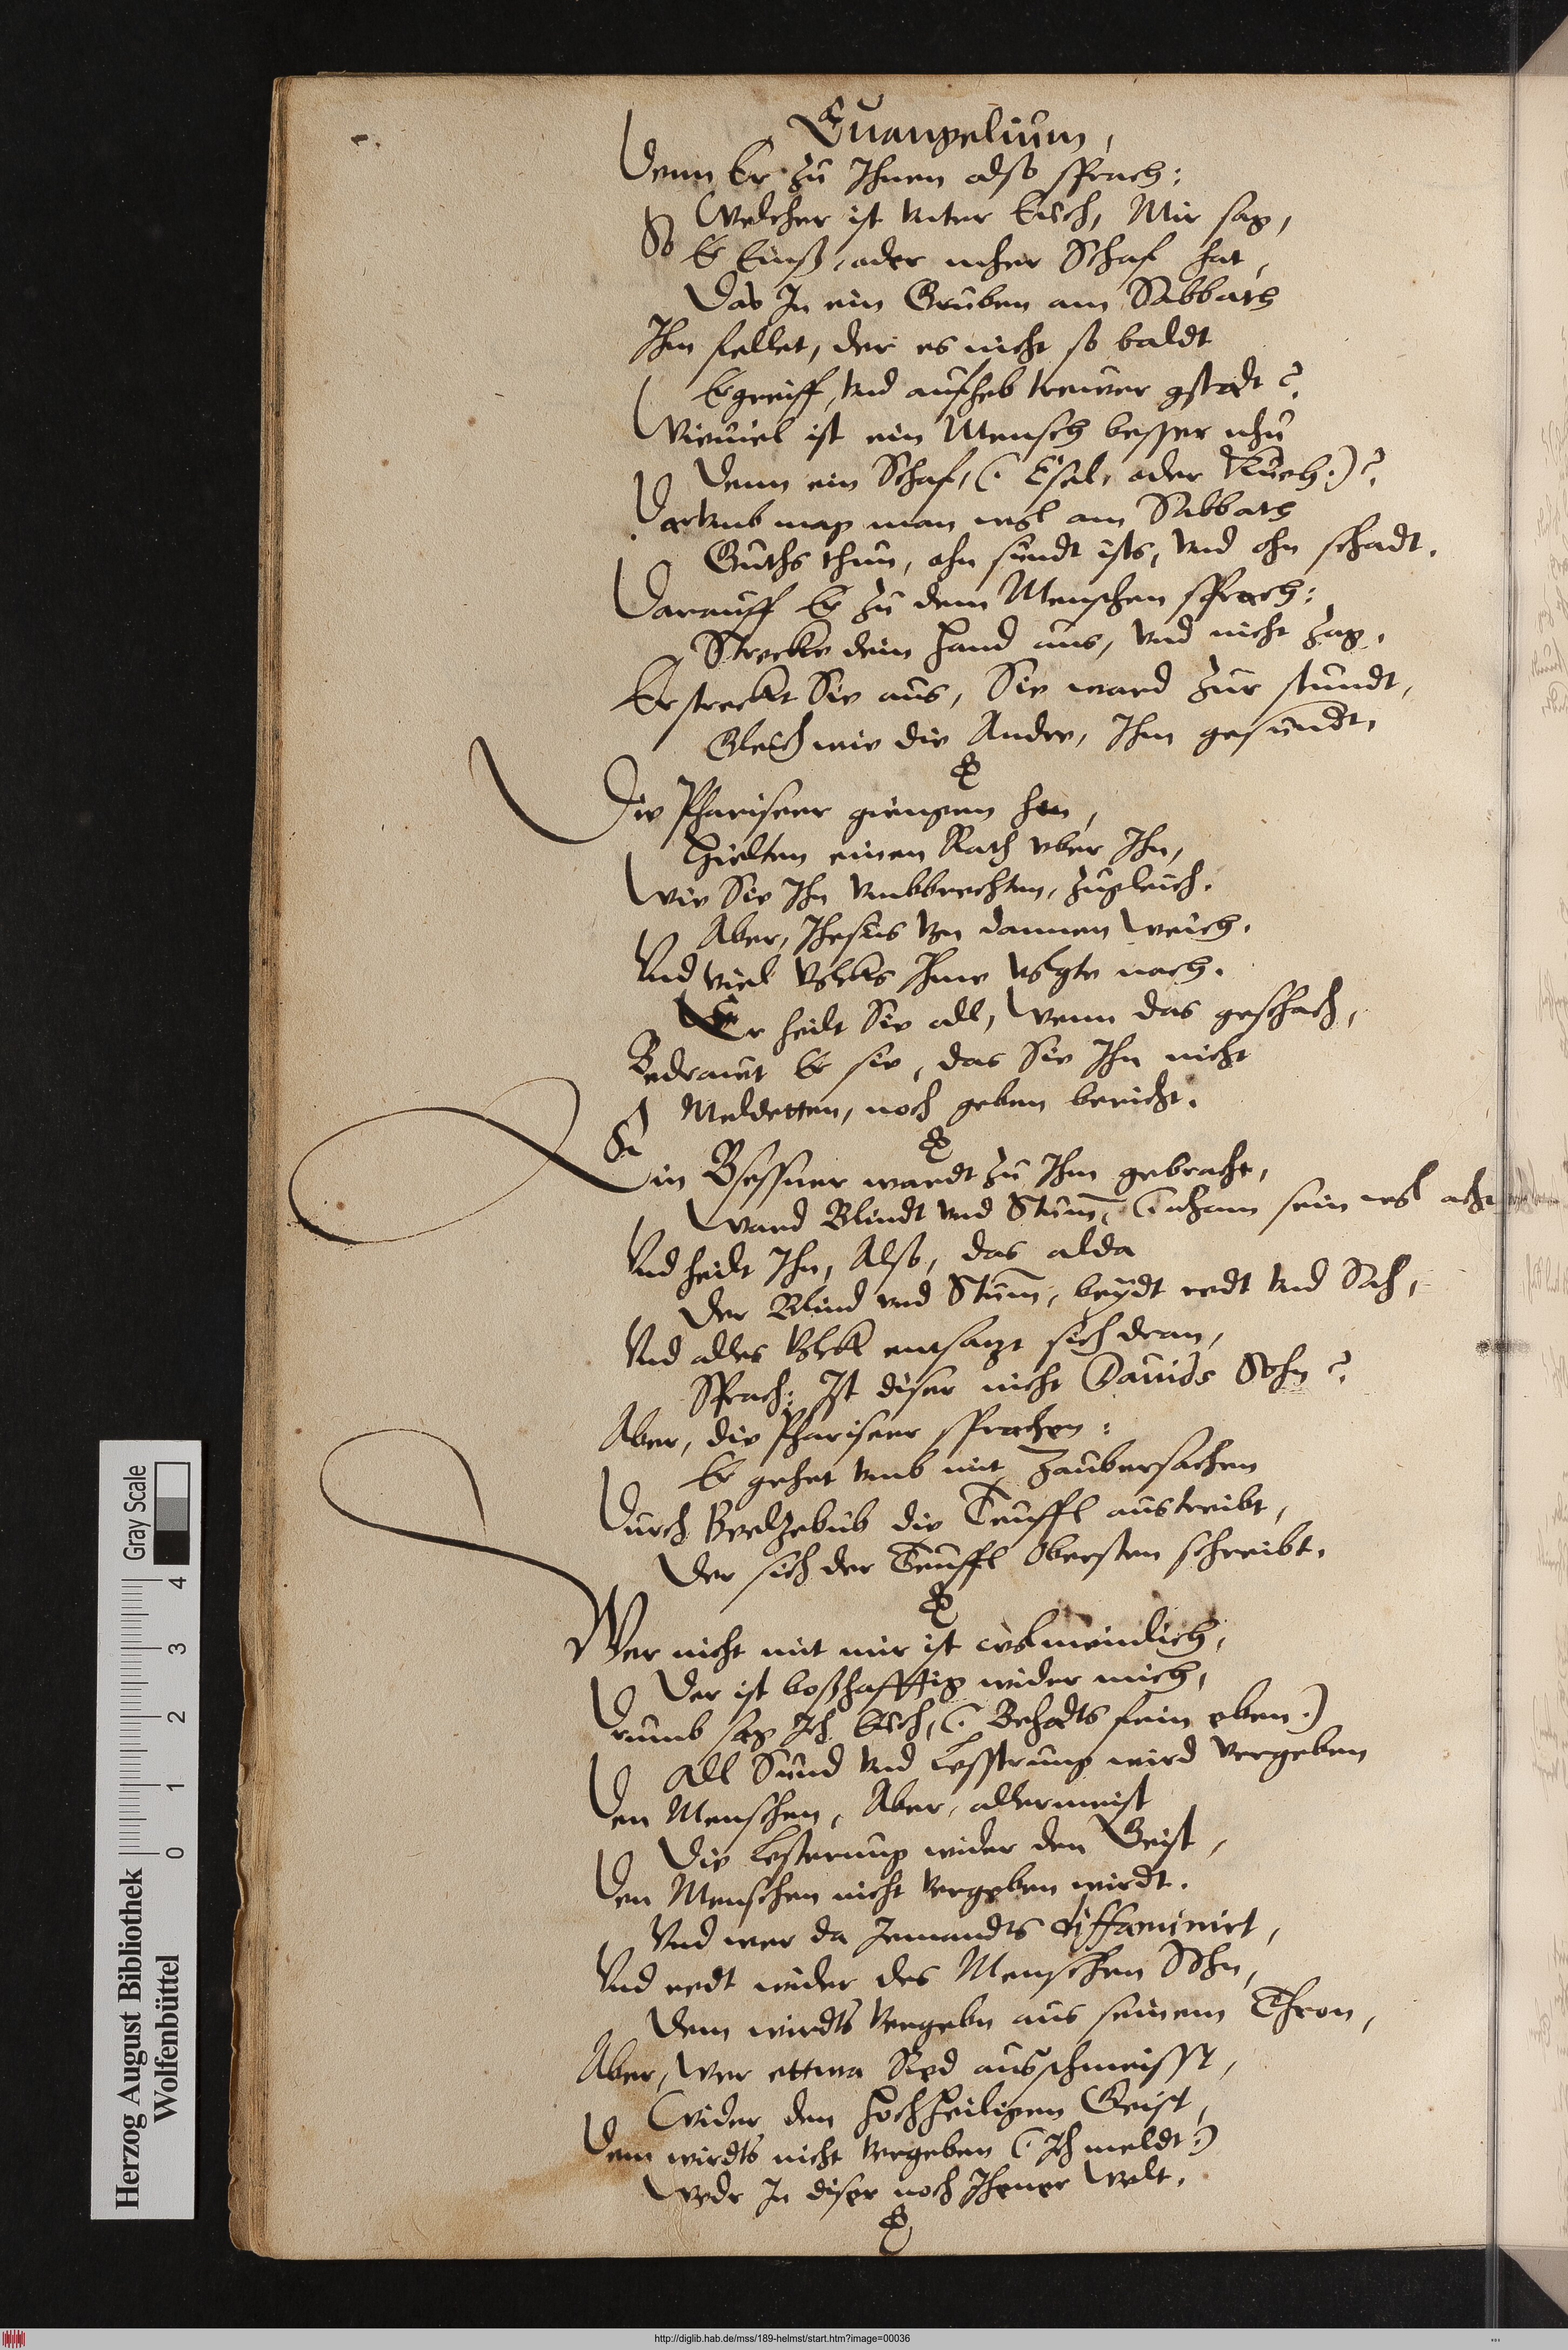 Euangelium,
Denn Er zu Ihnen also sprach:
Welcher ist vnter Euch, Mir sag,
So Er Einß, oder meher Schaf hat,
Das In ein Gruben am Sabbath
Ihm fellet, der es nicht so baldt
Ergreiff, vnd auffheb trewer gstadt?
Wieuiel ist ein Mensch besser nhu
Denn ein Schaf, (: Esel, oder Kueh:)?
Darumb mag man wol am Sabbath
Guths thun, ohn sündt ists, vnd ohn schadt.
Darauff Er zu dem Menschen sprach:
Strecke dein Hand aus, vnd nicht zag.
Er streckt Sie aus, Sie ward zur stundt,
Gleich wie die Andre, Ihm gesundt.
Die Phariseer giengen hin,
Hielten einen Rath vber Ihn,
Wie Sie Ihn vmbbrechten, zugleich.
Aber, Ihesus von dannen weich.
Vnd viel Volcks Ihme volgte nach.
Er heilt Sie all, Wenn das geschach,
Bedrawt Er sie, das Sie Ihn nicht
Meldetten, noch geben bericht.
Ein Bsessner wardt zu Ihm gebracht,
Ward Blindt vnd Stum, nham sein wol acht
Vnd heilt Ihn, Also, das alda
Der Blind vnd Stum, beydt redt vnd Sah,
Vnd alles Volck entsatzt sich dran,
Sprach: Ist diser nicht Dauids Sohn?
Aber, die Phariseer sprachen:
Er gehet vmb mit Zaubersachen
Durch Beelzebub die Teuffl austreibt,
Der sich der Teuffl Obersten schreibt.
Wer nicht mit mir ist wolmeinlich,
Der ist boßhafftig wider mich,
Drumb sag Ich Euch, (: Behalts fein eben:)
All Sünd vnd Lestrung wird vergeben
Den Menschen, Aber, allermeist
Die Lesterung wider den Geist,
Den Menschen nicht vergeben wirdt.
Vnd wer da Jemandts diffamirt,
Vnd redt wider des Menschen Sohn,
Dem wirdts vergebn aus seinem Thron,
Aber, wer ettwa Red ausschmeisst,
Wider den hochheiligen Geist,
Dem wirdts nicht vergeben (: Ich meldt:)
Wedr In diser noch Ihener Welt.
Herzog August Bibliothek
Wolfenbüttel
0 1 2 3 4
Gray Scale
http://diglib.hab.de/mss/189-helmst/start.htm?image=00036